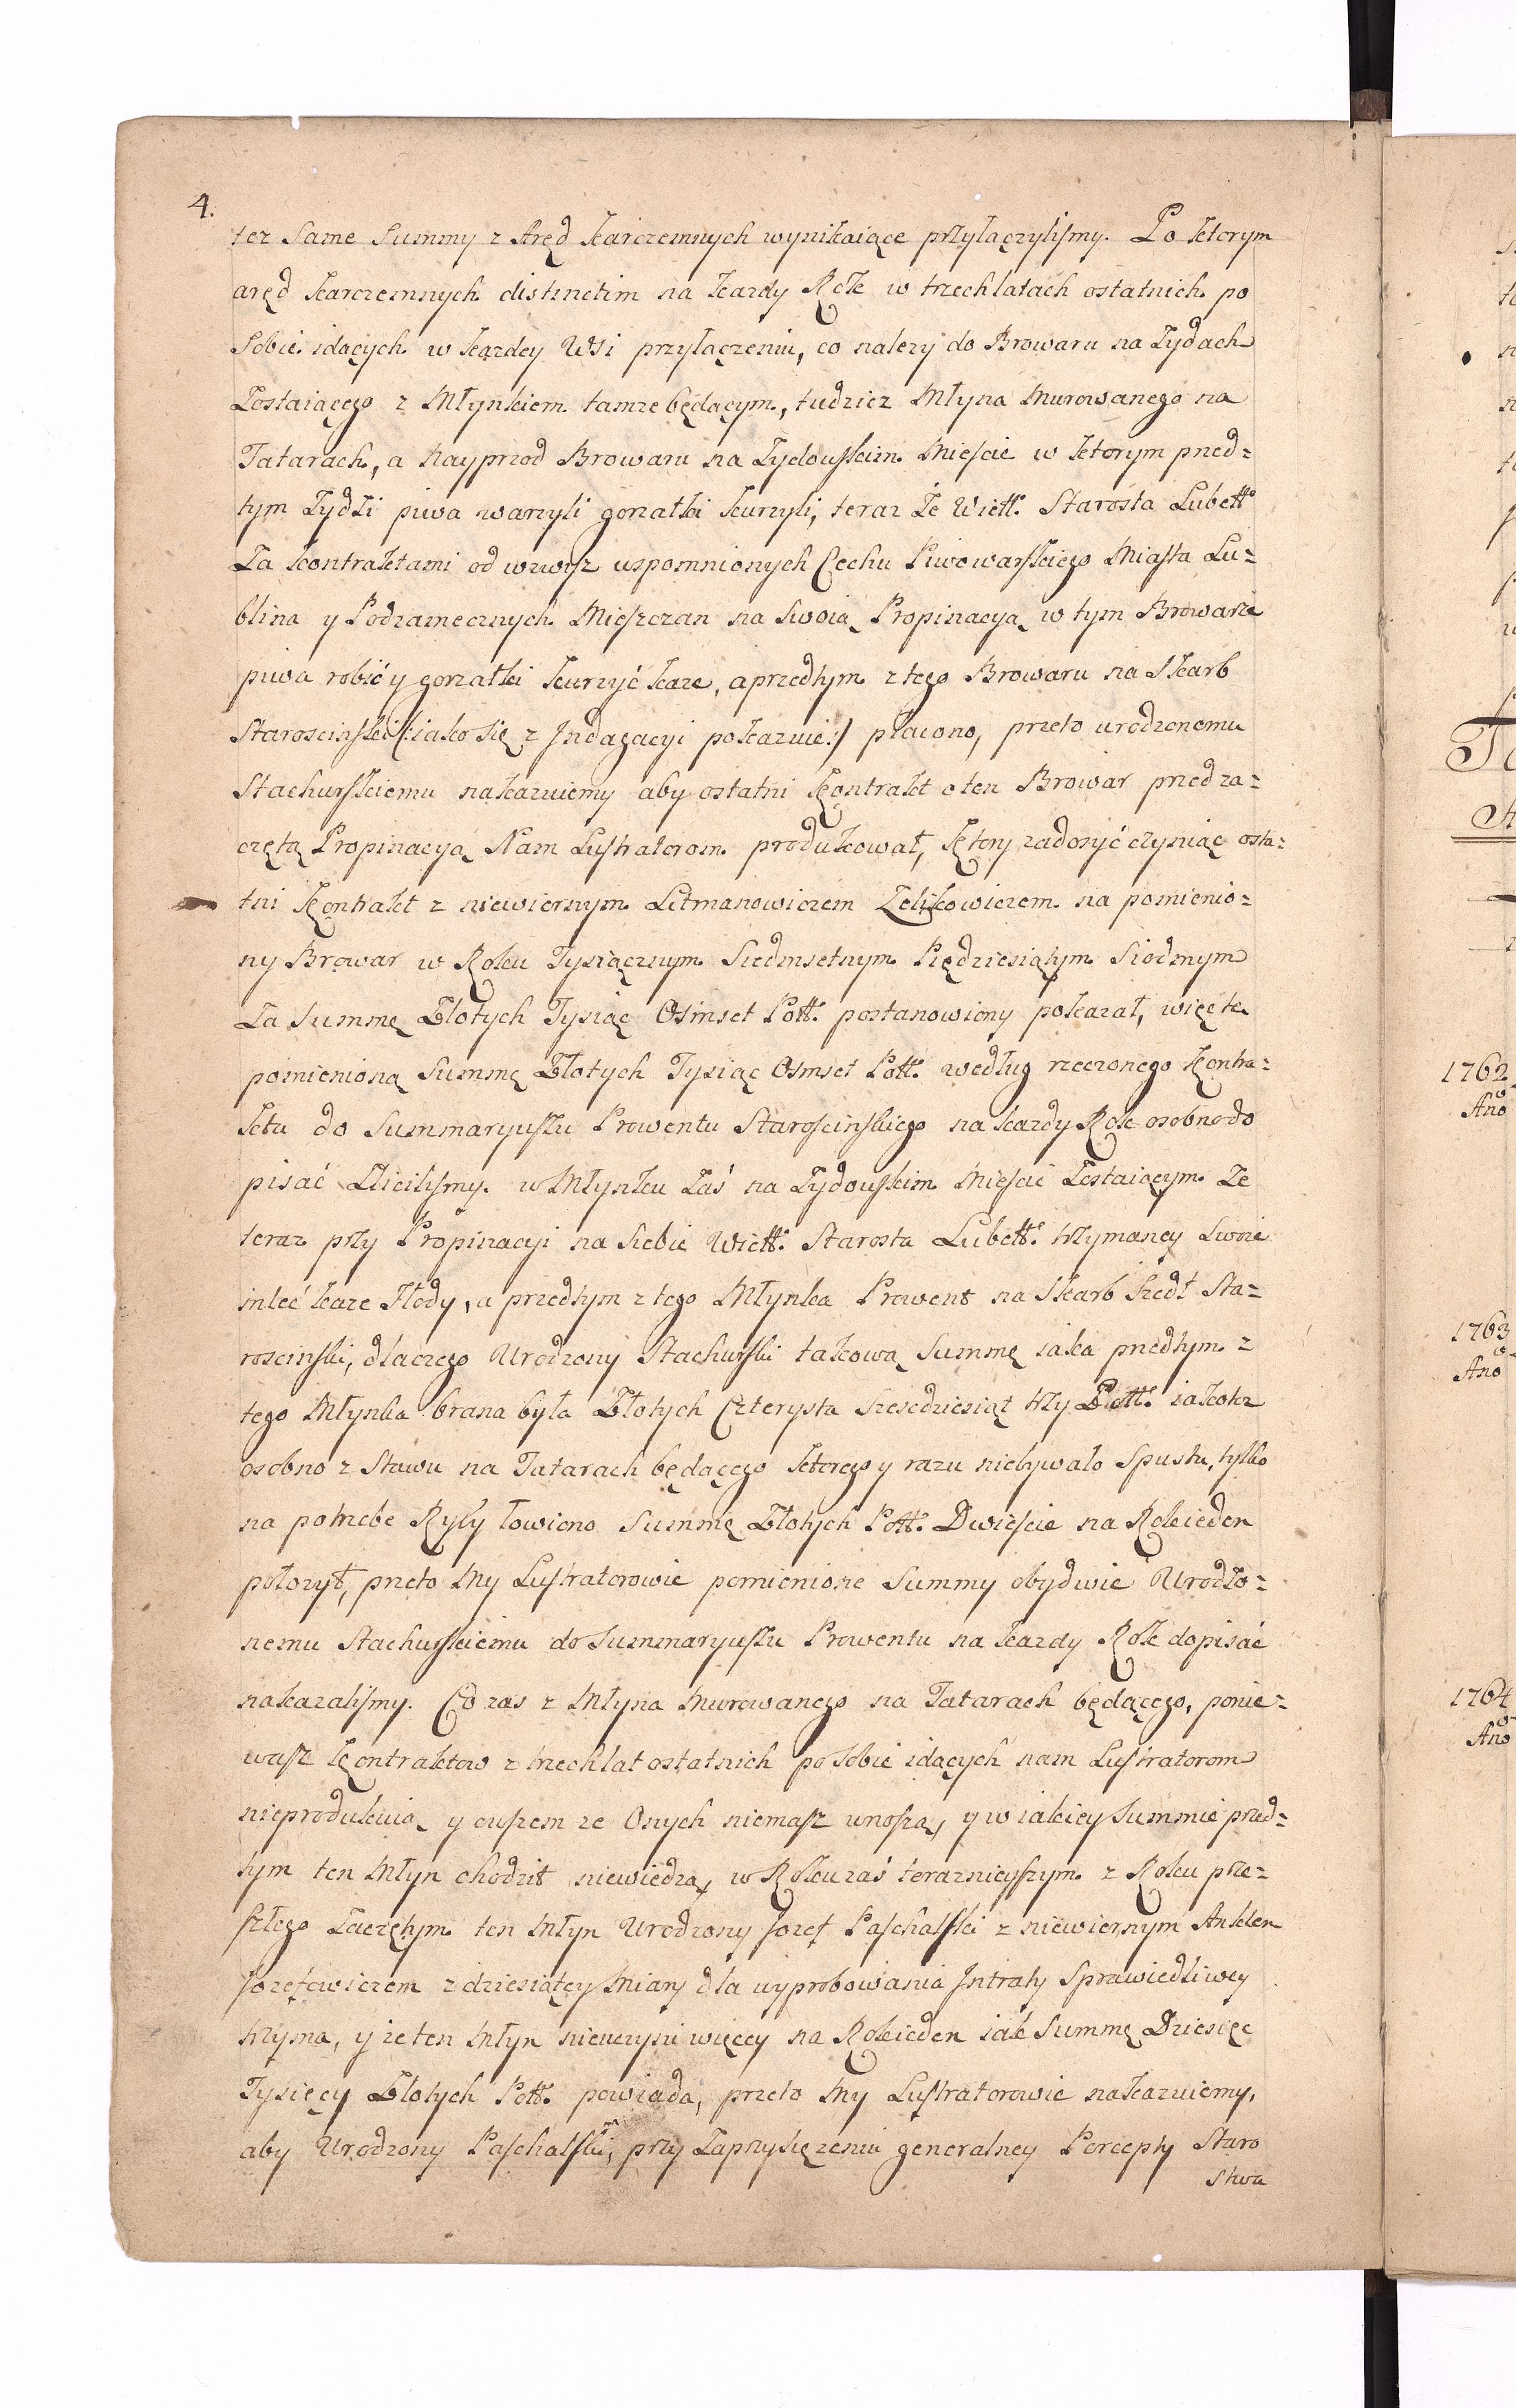 4.
tez same Summy z Aręd Karczemnych wynikaiące przyłączylismy. Po ktorym
aręd karczemnych distinctim na kazdy Rok w trzech latach ostatnich po
sobie idących w kazdey Wsi przyłączeniu, co nalezy do Browaru na Zydach
Zostaiącego z Młynkiem tamze będącym, tudziez Młyna Murowanego na
Tatarach, a Nayprzod Browaru na Zydowskim Mieście w ktorym przed=
tym Zydzi piwa warzyli gorzałki kurzyli, teraz Ze Wiell: Starosta Lubell:
Za kontraktami od wzwysz wspomnionych Cechu Piwowarskiego Miasta Lu=
blina y Podzamecznych Mieszczan na Swoią Propinacyą w tym Browarze
piwa robić y gorzałki kurzyć kaze, a przedtym z tego Browaru na Skarb
Starosciński (:iako się z Jndagacyi pokazuie:) płacono, przeto urodzonemu
Stachurskiemu nakazuiemy aby ostatni Kontrakt o ten Browar przed za=
czętą Propinacyą Nam Lustratorom produkował, Ktory zadosyć czyniąc osta=
tni Kontrakt z niewiernym Litmanowiczem Zelikowiczem na pomienio=
ny Browar w Roku Tysiącznym Siedmsetnym Piędziesiątym Siodmym
Za Summę Złotych Tysiąc Osimset Poll: postanowiony pokazał, więc te
pomienioną Summę Złotych Tysiąc Osmset Poll: według rzeczonego Kontra=
ktu do Summaryuszu Prowentu Starościnskiego na kazdy Rok osobno do
pisać Zlicilismy. w Młynku Zaś na Zydowskim Mieście Zostaiącym Ze
teraz przy Propinacyi na Siebie Wiell: Starosta Lubell: trzymaney Swoie
mleć kaze Słody, a przedtym z tego Młynka Prowent na Skarb szedł Sta=
rosciński, dlaczego Urodzony Stachurski takową Summę iaka przedtym z
tego Młynka brana była Złotych Czterysta szescdziesiąt trzy Poll: iakotez
osobno z Stawu na Tatarach będącego ktorego y razu niebywało Spustu, tylko
na potrzebe Ryby łowiono Summę Złotych Poll: Dwiescie na Rok ieden
połozył, przeto My Lustratorowie pomienione Summy obydwie Urodzo=
nemu Stachurskiemu do Summaryuszu Prowentu na kazdy Rok dopisać
nakazalismy. Co zas z Młyna Murowanego na Tatarach będącego, ponie=
wasz Kontraktow z trzech lat ostatnich po sobie idących nam Lustratorom
nieprodukuią y owszem ze Onych niemasz wnoszą, y w iakiey Summie przed=
tym ten Młyn chodził niewiedzą, w Roku zaś terazniejszym z Roku prze=
szłego Zaczętym ten Młyn Urodzony Jozef Paschalski z niewiernym Anklem
Jozefowiczem z dziesiątey Miary dla wyprobowania Jntraty Sprawiedliwey
trzyma, y ze ten Młyn nieuczyni więcey na Rok ieden iak Summę Dziesięc
Tysięcy Złotych Poll: powiada, przeto My Lustratorowie nakazuiemy,
aby Urodzony Paschalski, przy Zaprzysięzeniu generalney Percepty Staro
stwa
1762
Ano
1763
Ano
1764
Ano